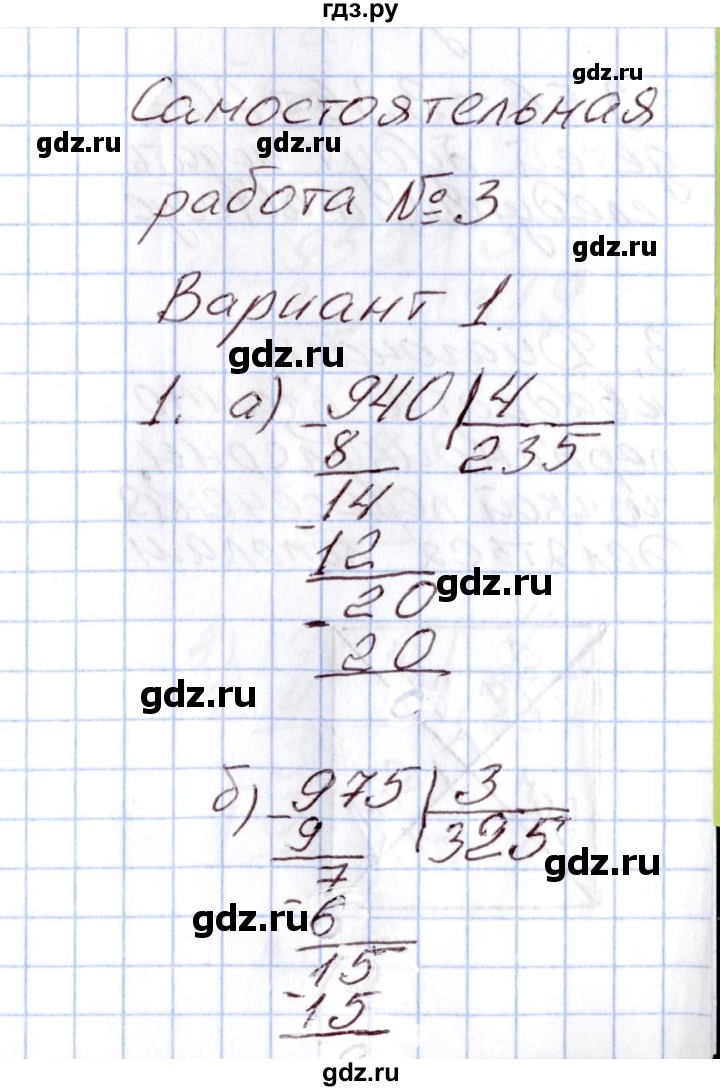 гдз.ру
gdz.ru
Самостоятельная
gdz.ru gdz.ru
работа № 3
gdz.ru
Вариант 1.
gdz.ru
1. а) - 940 | 4
8 235
- 14
12
gdz.ru
- 20
20
gdz.ru
б) - 975 | 3
9 325
gdz.ru
7
gdz.ru
- 6
15
- 15
gdz.ru